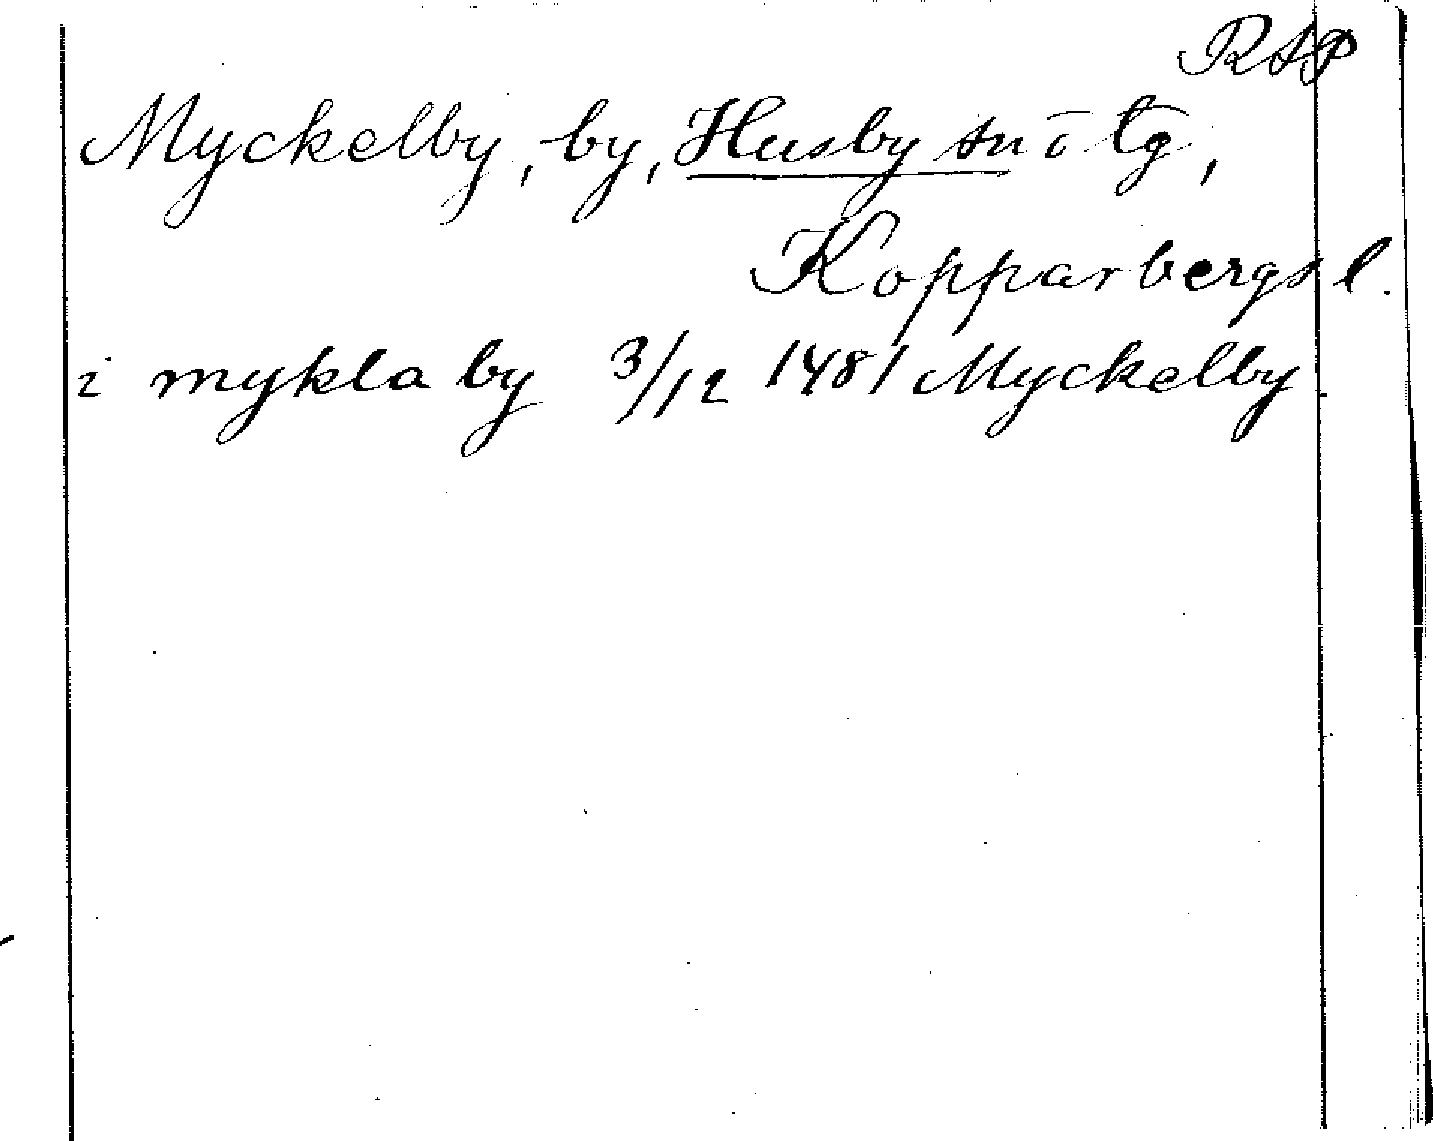 RAP
Myckelby, by, Husby sn o tg,
Kopparbergs l.
i mykla by 3/12 1481 Myckelby